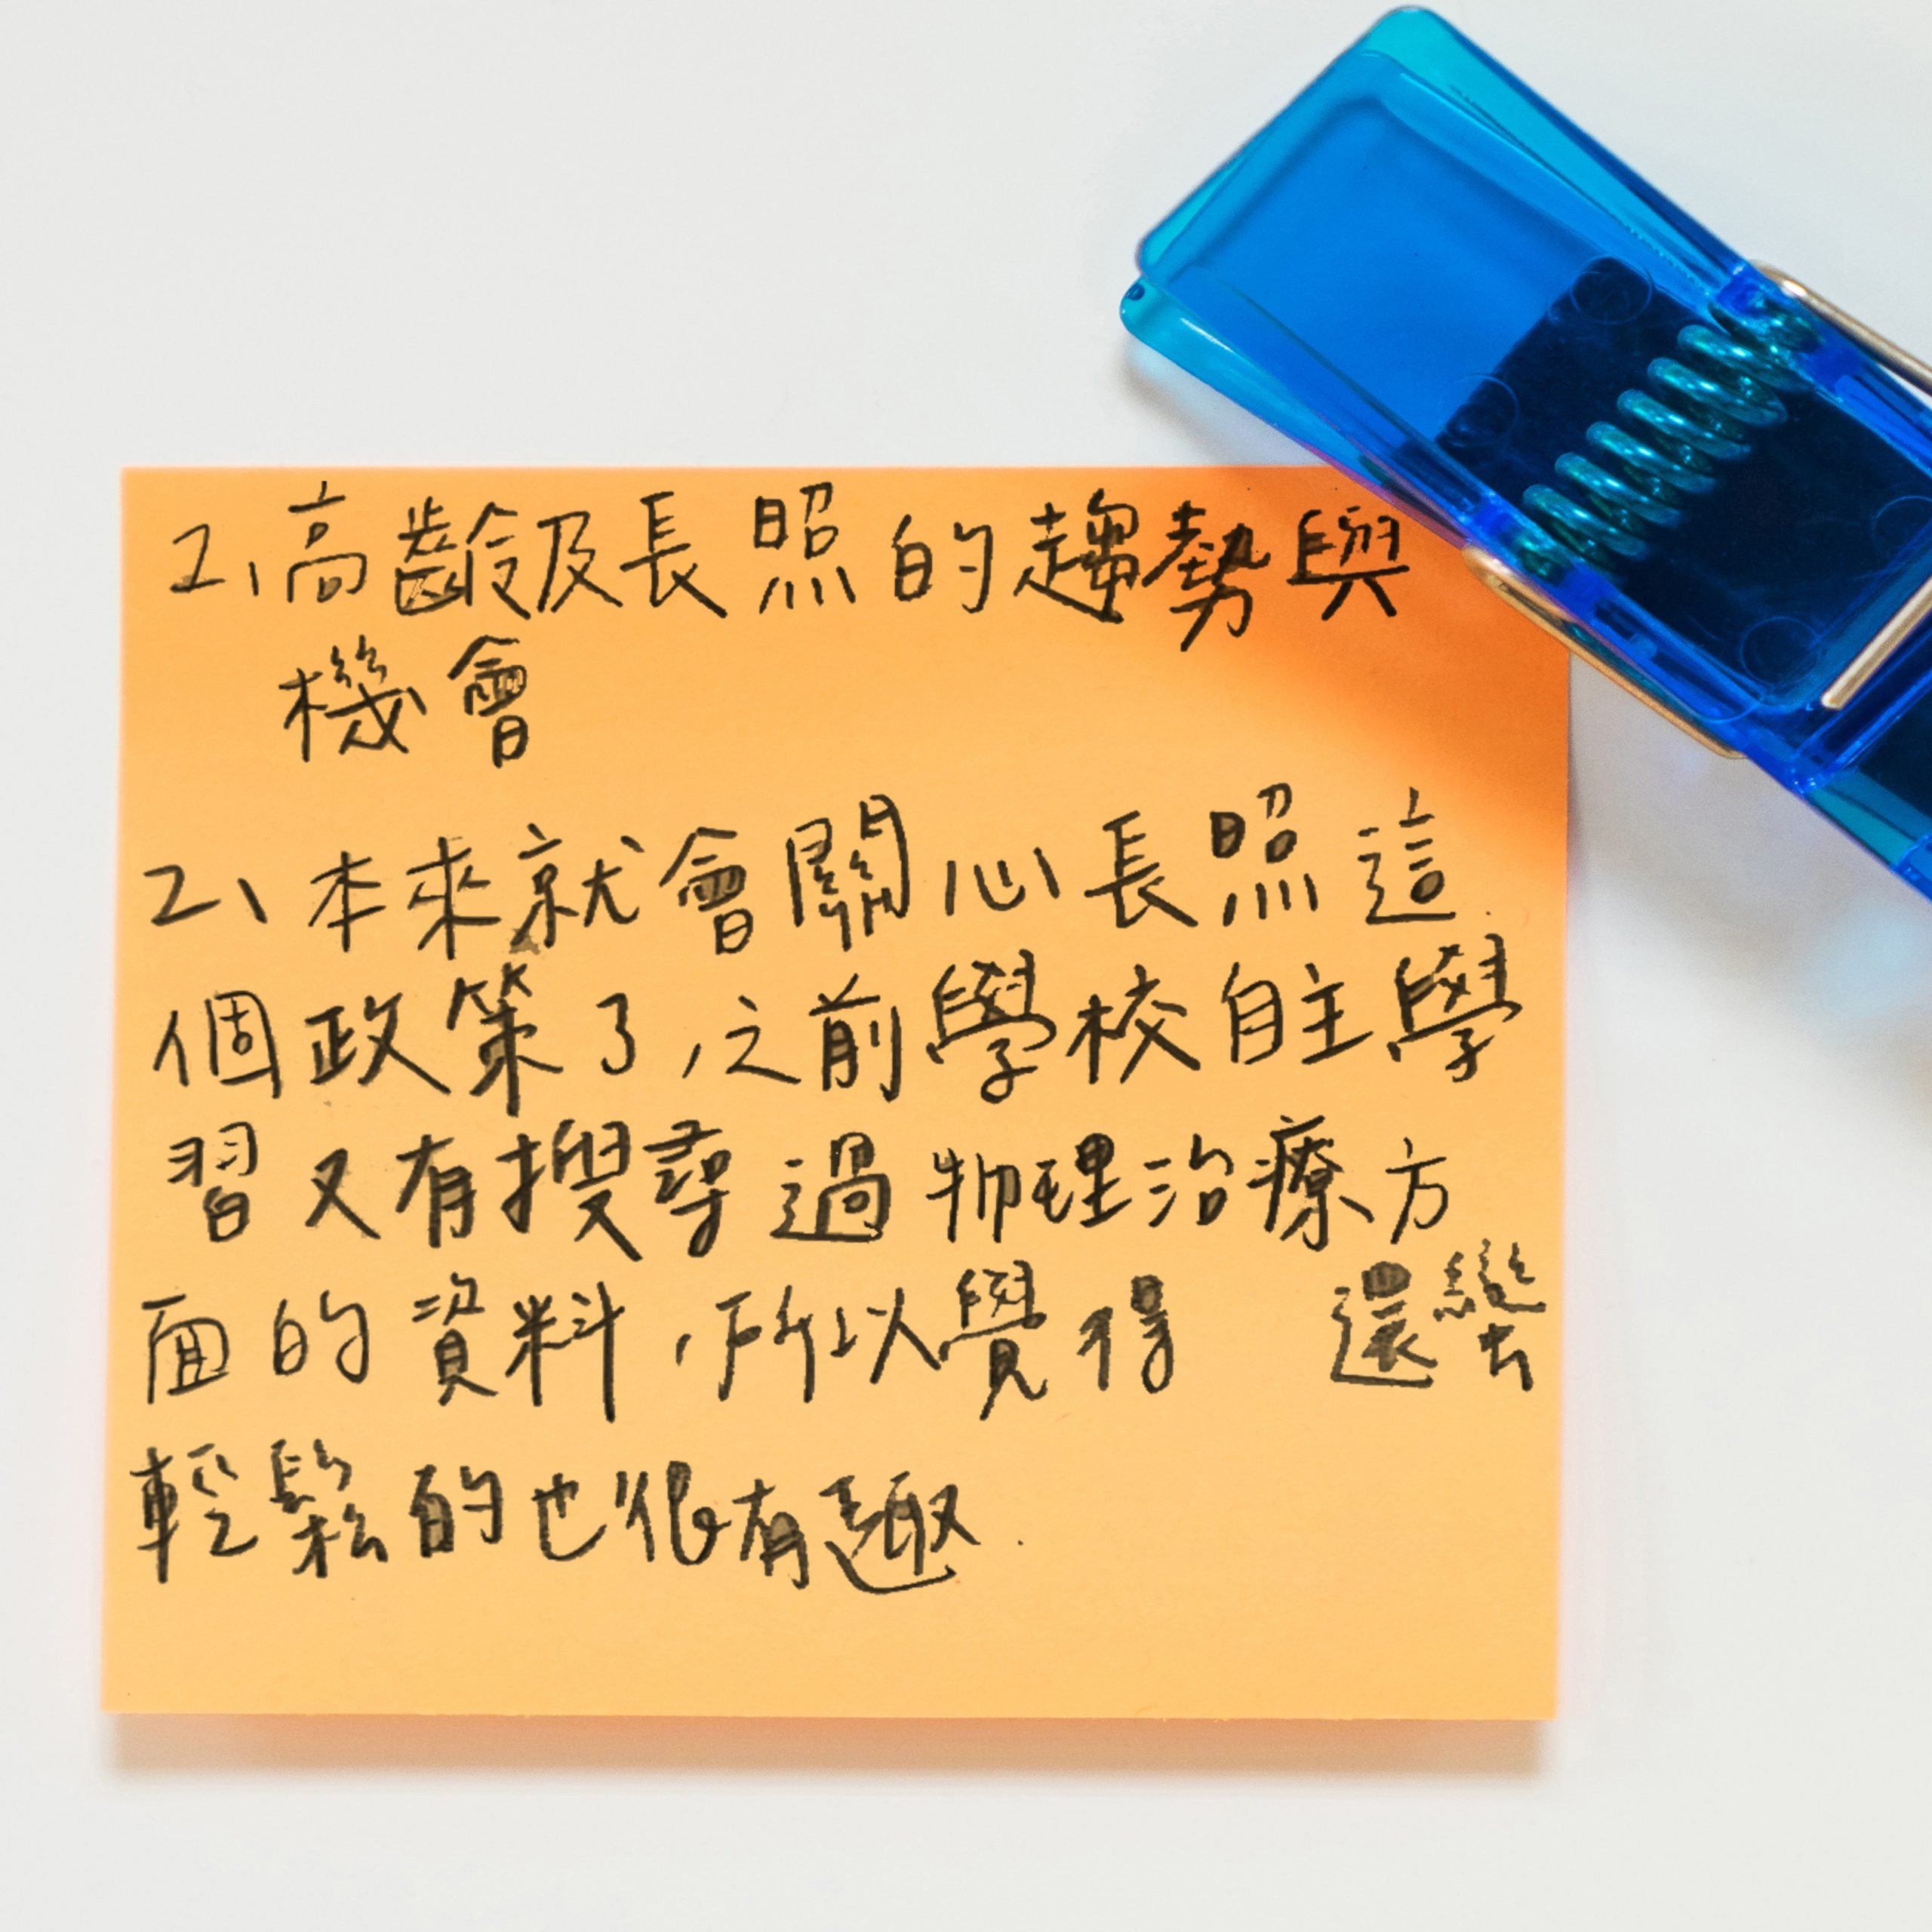 2、高齡及長照的趨勢與
機會
2、本來就會關心長照這
個政策了,之前學校自主學
習又有搜尋過物理治療方
面的資料,所以覺得 還蠻
輕鬆的也很有趣.